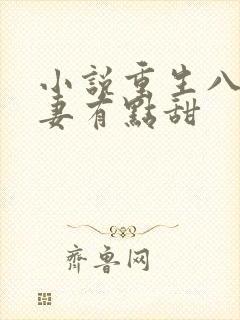 小説重生八
妻有點甜
齊鲁网